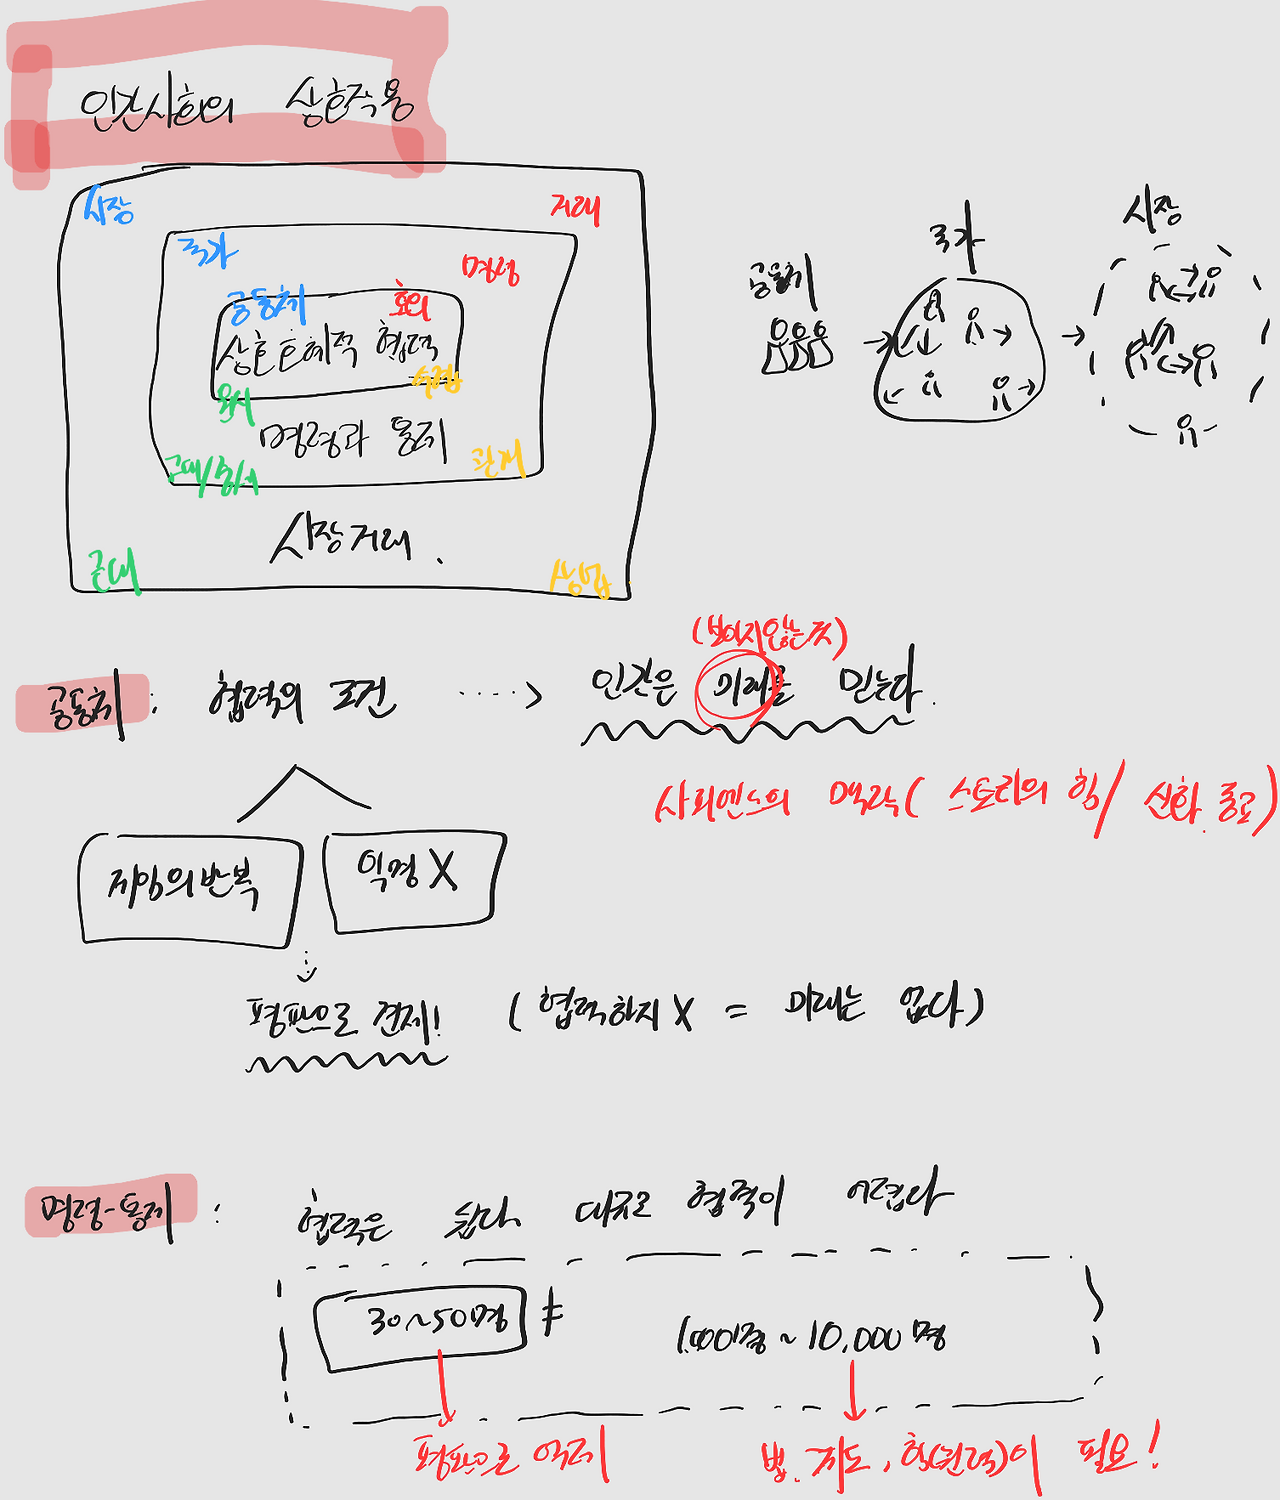 인간사회의 상호작용
시장 거래
국가 명령
공동체 호의
상호호혜적 협력
원시 수렵
명령과 통제
고대/중세 관계
시장거래.
근대 상업
공동체 → 국가 → 시장
(보이지않는 것)
공동체 : 협력의 조건 ····> 인간은 미래를 믿는다.
사피엔스의 맥락( 스토리의 힘/ 신화. 종교)
게임의 반복 익명 X
평판으로 견제! (협력하지 X = 미래는 없다)
명령-통제 : 협력은 쉽다 대규모 협력이 어렵다
30~50명 ≠ 1,000명 ~ 10,000명
평판으로 억제 법. 제도, 힘(권력)이 필요!